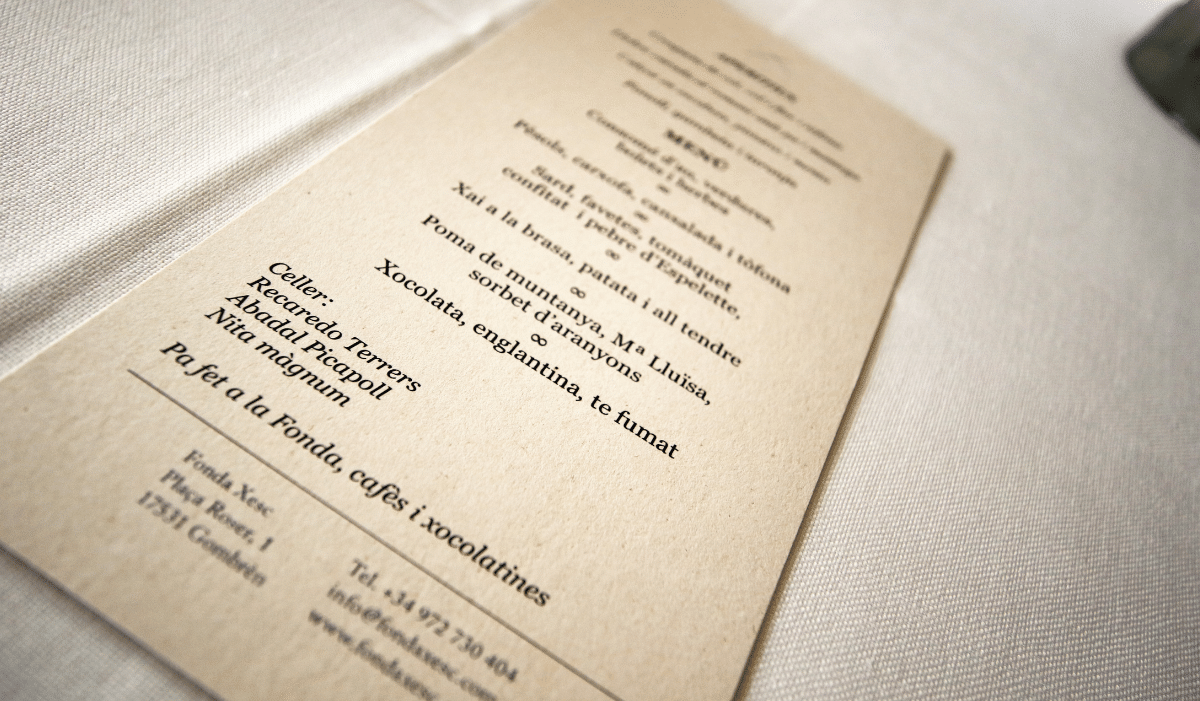 MENÚ
Consomé d'au, verdures,
bolets i herbes
∞
Pèsols, carxofa, cansalada i tòfona
∞
Sard, favetes, tomàquet
confitat i pebre d'Espelette,
∞
Xai a la brasa, patata i all tendre
∞
Poma de muntanya, Mª Lluïsa,
sorbet d'aranyons
∞
Xocolata, englantina, te fumat
Celler:
Recaredo Terrers
Abadal Picapoll
Nita màgnum
Pa fet a la Fonda, cafès i xocolatines
Fonda Xesc
Plaça Roser, 1
17531 Gombrèn
Tel. +34 972 730 404
info@fondaxesc.com
www.fondaxesc.